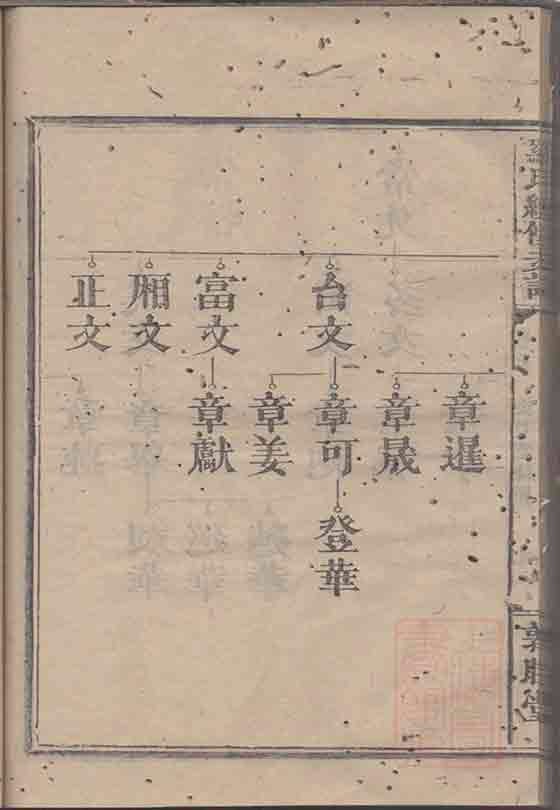 台文
富文
厢文
正文
章暹
章晟
章可
章姜
章獻
登華